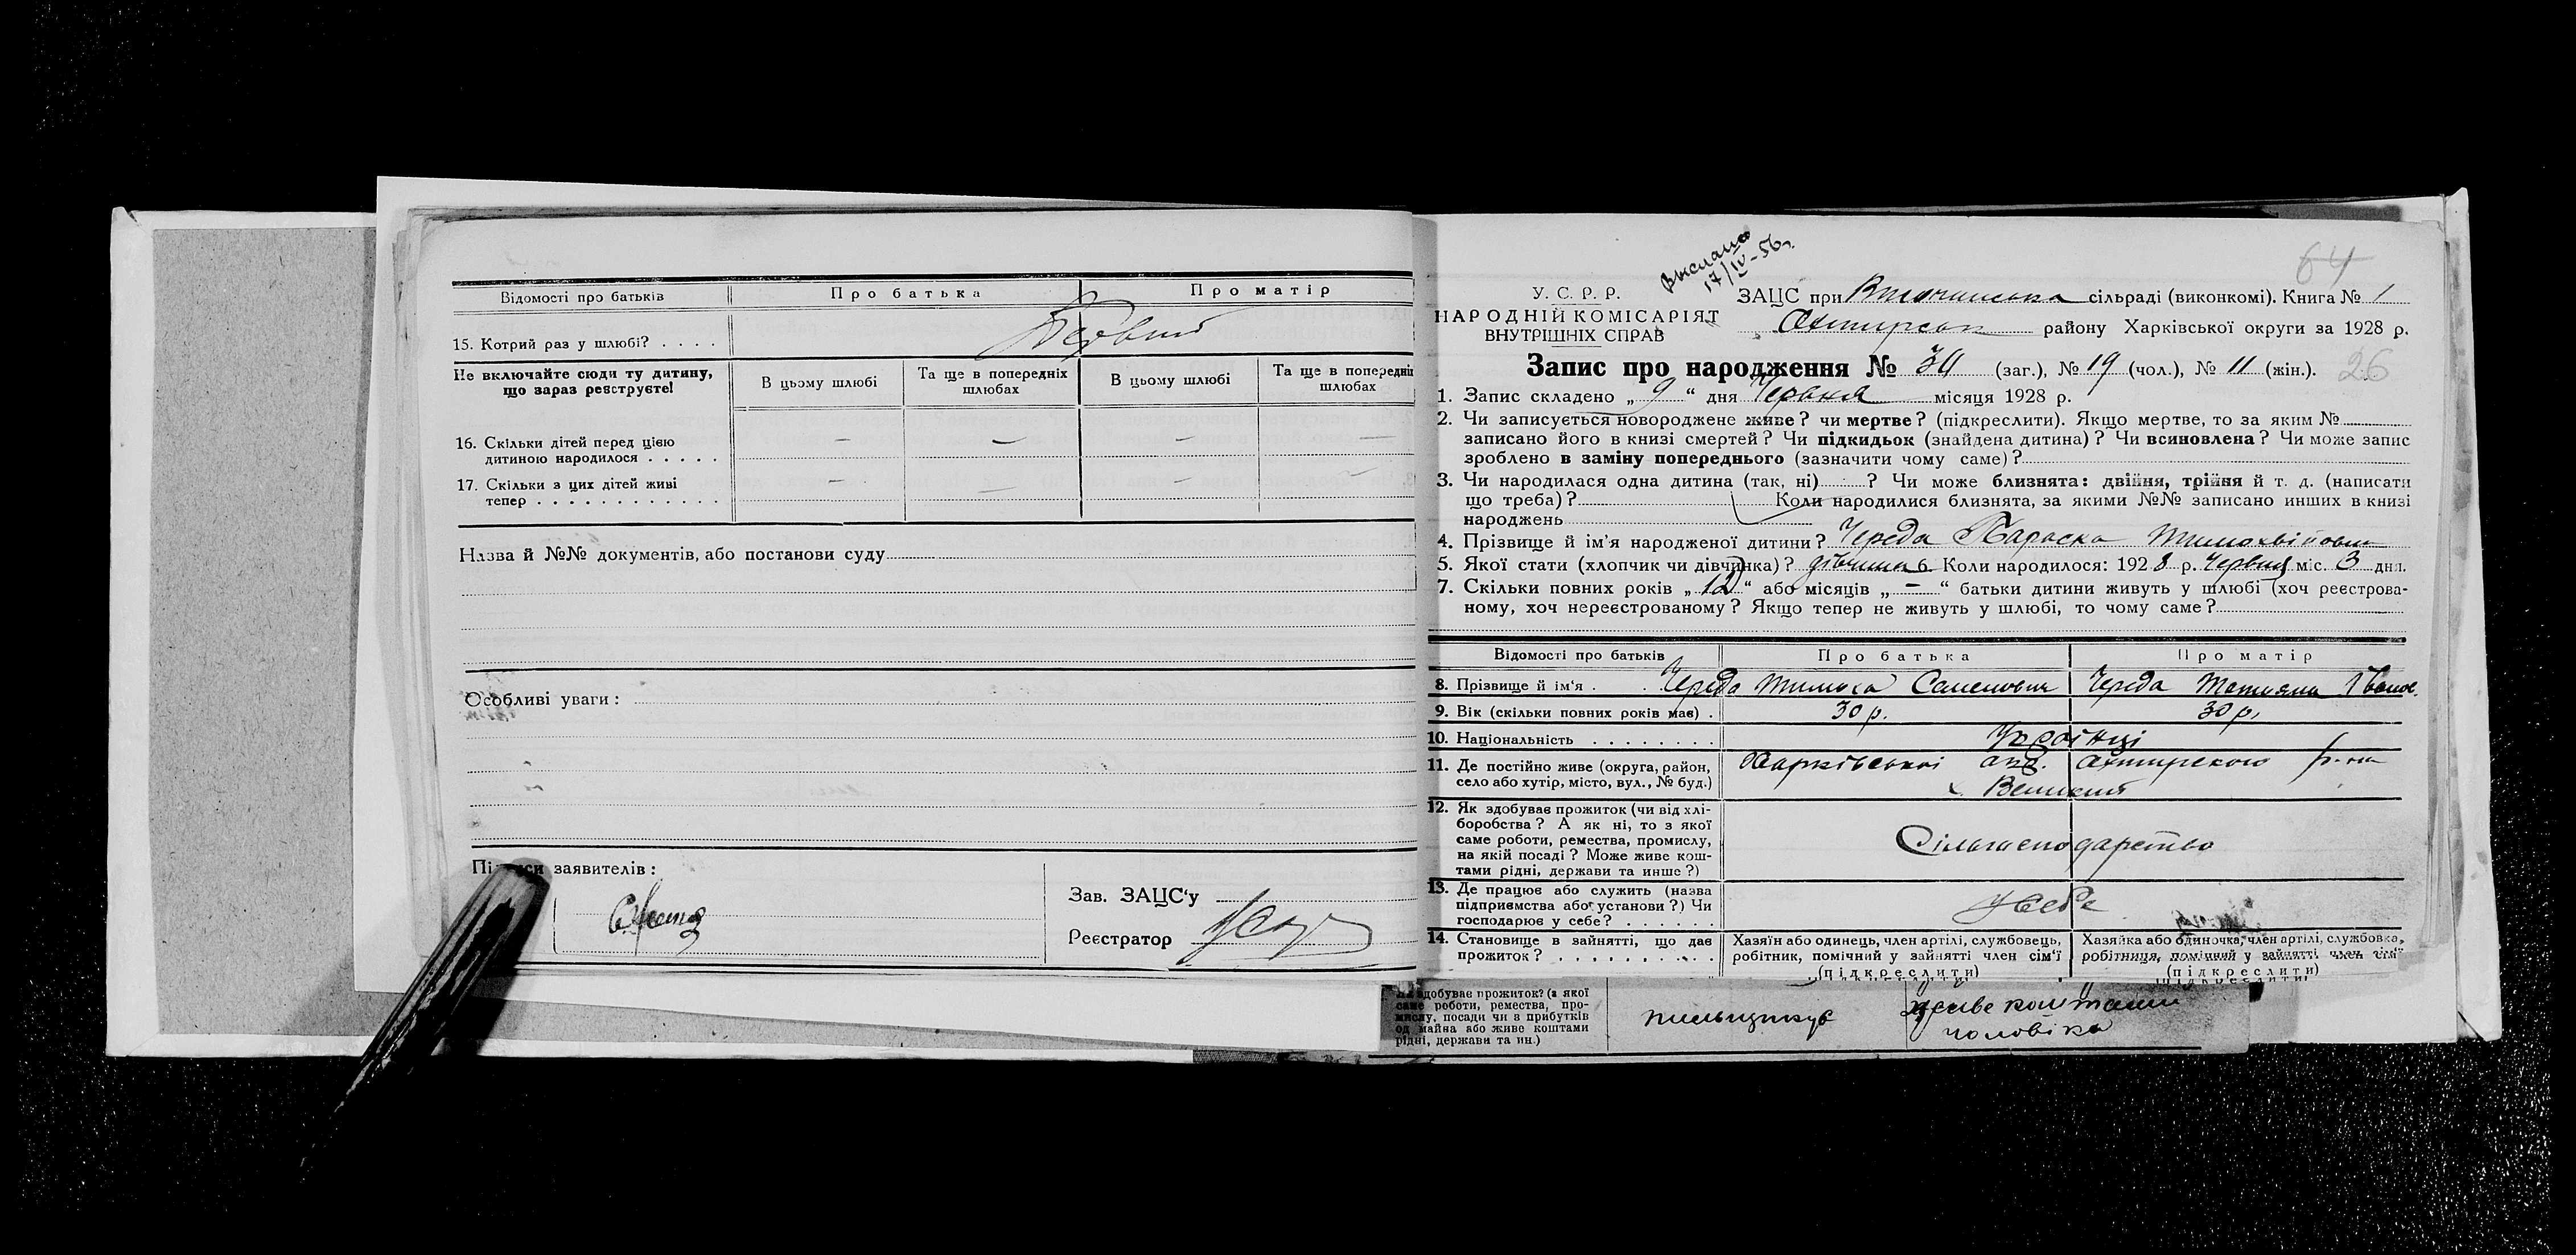 Відомості про батьків Про батька Про матір
15. Котрий раз у шлюбі? . . . . Первий
Не включайте сюди ту дитину, що зараз реєструєте! В цьому шлюбі Та ще в попередніх шлюбах В цьому шлюбі Та ще в попередніх шлюбах
16. Скільки дітей перед цією — — — —
дитиною народилося . . . . .
17. Скільки з цих дітей живі — — — —
тепер . . . . . . . . . . . .
Назва й №№ документів, або постанови суду
Особливі уваги :
Підписи заявителів :
Зав. ЗАЦС'у
Реєстратор
Выслано
17/IV-56
64
У. С. Р. Р.
НАРОДНІЙ КОМІСАРІЯТ
ВНУТРІШНІХ СПРАВ
ЗАЦС при сільраді (виконкомі). Книга № 1
Охтирськ району Харківської округи за 1928 р.
Запис про народження № 30 (заг.), № 19 (чол.), № 11 (жін.). 26
1. Запис складено „ 9 “ дня Червня місяця 1928 р.
2. Чи записується новороджене живе? чи мертве? (підкреслити). Якщо мертве, то за яким №
записано його в книзі смертей? Чи підкидьок (знайдена дитина)? Чи всиновлена? Чи може запис
зроблено в заміну попереднього (зазначити чому саме)?
3. Чи народилася одна дитина (так, ні) ? Чи може близнята: двійня, трійня й т. д. (написати
що треба)? Коли народилися близнята, за якими №№ записано инших в книзі
народжень
4. Прізвище й ім'я народженої дитини? Череда Параска Тимохвіївна
5. Якої стати (хлопчик чи дівчинка)? дівчина 6. Коли народилося: 1928 р. Червня міс. 3 дня.
7. Скільки повних років „ 12 “ або місяців „ — “ батьки дитини живуть у шлюбі (хоч реєстрова-
ному, хоч нереєстрованому? Якщо тепер не живуть у шлюбі, то чому саме?
Відомості про батьків Про батька Про матір
8. Прізвище й ім'я . . . Череда Тимоха Семенович Череда Татияна Іванов.
9. Вік (скільки повних років має) . 30 р. 30 р.
10. Національність . . . . . . . . Українці
11. Де постійно живе (округа, район, Харківської окр. Охтирского р-на
село або хутір, місто, вул., № буд.)
12. Як здобуває прожиток (чи від хлі-
боробства? А як ні, то з якої
саме роботи, ремества, промислу,
на якій посаді? Може живе кош-
тами рідні, держави та инше?)
Сільгосподарство
13. Де працює або служить (назва
підприємства або установи?) Чи
господарює у себе? . . . . . .
У себе
14. Становище в зайнятті, що дає
прожиток? . . . . . . . . . .
Хазяїн або одинець, член артілі, службовець,
робітник, помічний у зайнятті член сім'ї
(підкреслити)
Хазяйка або одиночка, член артілі, службовка,
робітниця, помічний у зайнятті член сім'ї
(підкреслити)
здобуває прожиток? (з якої
саме роботи, ремества, про-
мислу, посади чи з прибутків
од майна або живе коштами
рідні, держави та ин.)
живе коштами
чоловіка